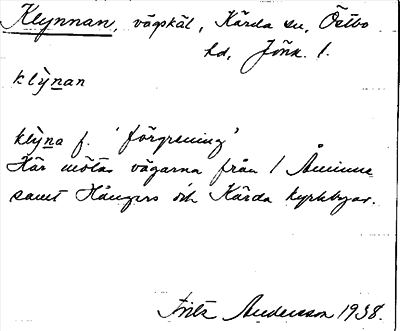 Klynnan, vägskäl, Kärda sn, Östbo
hd, Jönk. l.
klỳnan
klỳna f. 'förgrening'
Här mötas vägarna från l Åminne
samt Hångers och Kärda kyrkbyar.
Frits Andersson 1938.